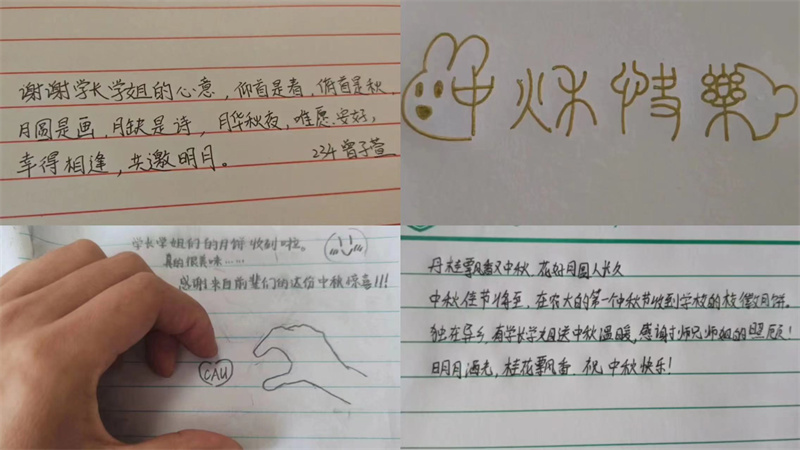 谢谢学长学姐的心意，仰首是春，俯首是秋，
月圆是画，月缺是诗，月华秋夜，唯愿安好，
幸得相逢，共邀明月。
234 曾子萱
中秋快樂
学长学姐们的月饼收到啦。
真的很美味……
感谢来自前辈们的这份中秋惊喜!!!
CAU
丹桂飘香又中秋，花好月圆人长久
中秋佳节将至，在农大的第一个中秋节收到学校的校徽月饼。
独在异乡，有学长学姐送中秋温暖，感谢师兄师姐的照顾！
明月洒光，桂花飘香，祝中秋快乐！